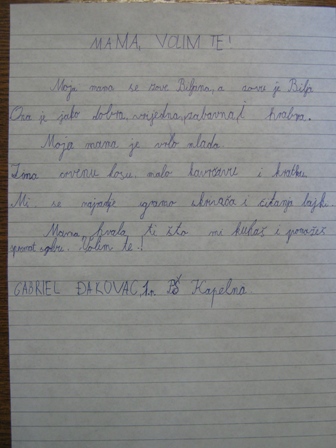 MAMA, VOLIM TE!
Moja mama se zove Biljana, a zovu je Bilja
Ona je jako dobra, vrijedna, zabavna, i hrabra.
Moja mama je vrlo mlada.
Ima crvenu kosu. malo kovrčavu i kratku.
Mi se najradje igramo skrivača i čitanja bajki.
Mama, hvala ti što mi kuhaš i pomažeš
spremat sobu. Volim te!
GABRIEL ĐAKOVAC, 1.r. PŠ Kapelna